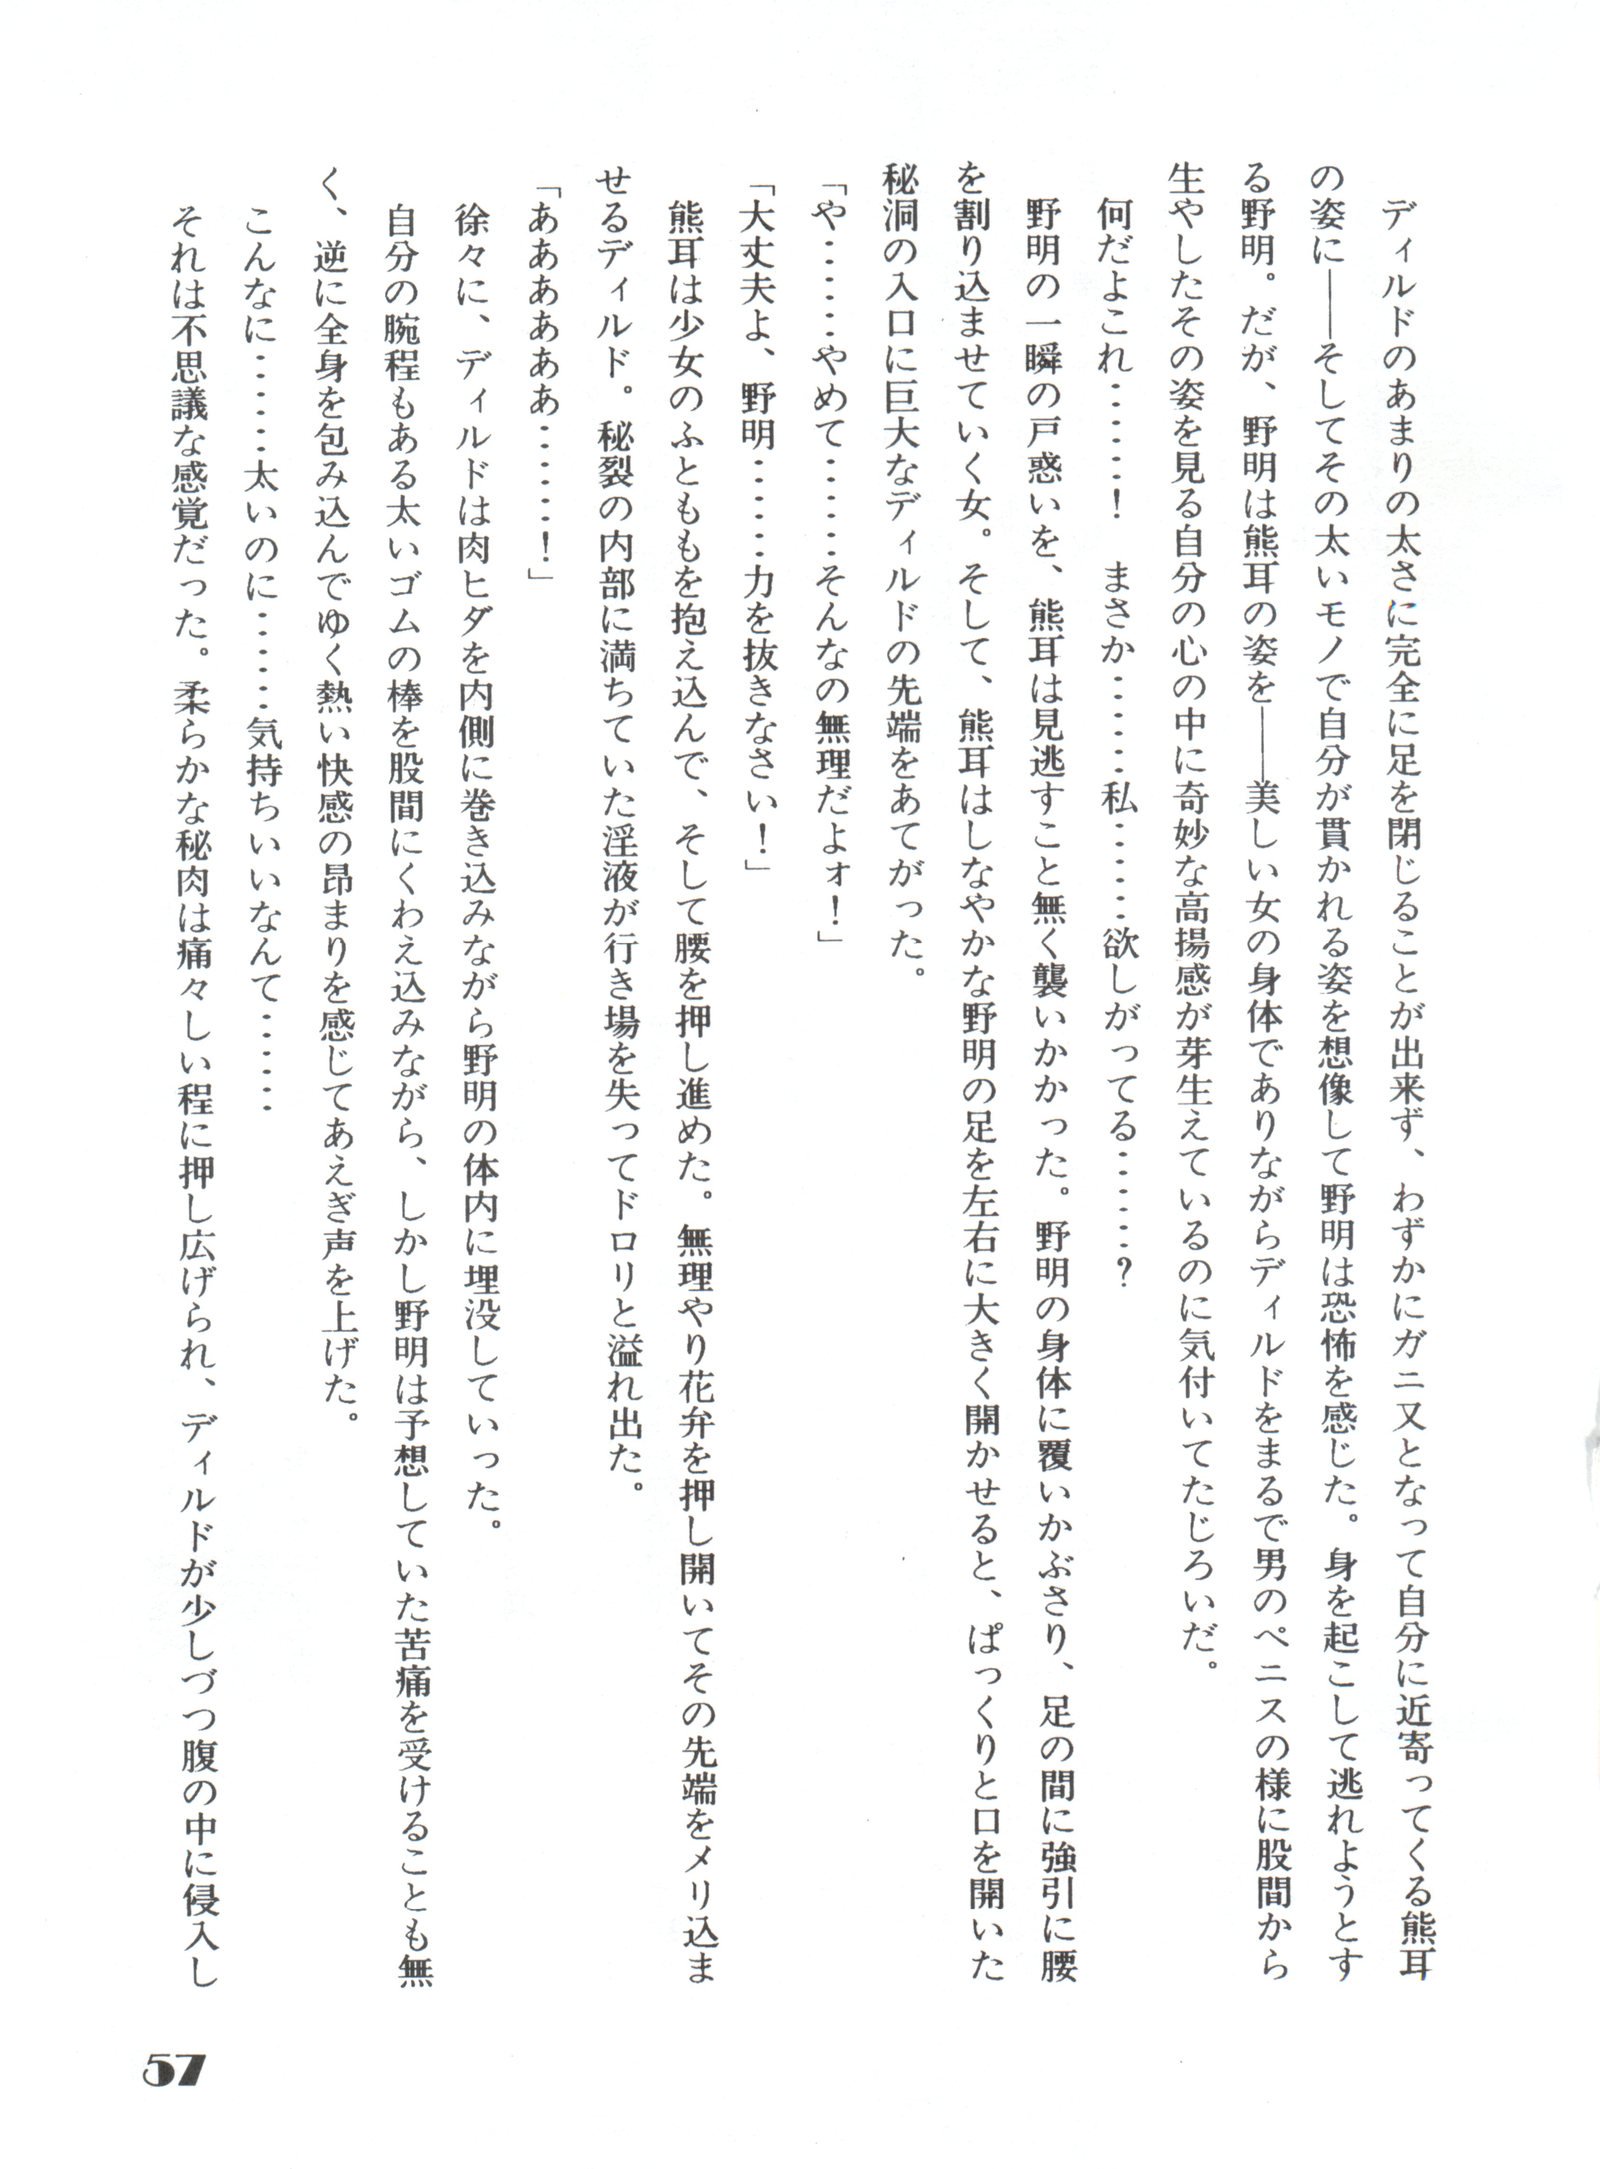 ディルドのあまりの太さに完全に足を閉じることが出来ず、わずかにガニ又となって自分に近寄ってくる熊耳
の姿に――そしてその太いモノで自分が貫かれる姿を想像して野明は恐怖を感じた。身を起こして逃れようとす
る野明。だが、野明は熊耳の姿を――美しい女の身体でありながらディルドをまるで男のペニスの様に股間から
生やしたその姿を見る自分の心の中に奇妙な高揚感が芽生えているのに気付いてたじろいだ。
何だよこれ……！　まさか……私……欲しがってる……？
野明の一瞬の戸惑いを、熊耳は見逃すこと無く襲いかかった。野明の身体に覆いかぶさり、足の間に強引に腰
を割り込ませていく女。そして、熊耳はしなやかな野明の足を左右に大きく開かせると、ぱっくりと口を開いた
秘洞の入口に巨大なディルドの先端をあてがった。
「や……やめて……そんなの無理だよォ！」
「大丈夫よ、野明……力を抜きなさい！」
熊耳は少女のふとももを抱え込んで、そして腰を押し進めた。無理やり花弁を押し開いてその先端をメリ込ま
せるディルド。秘裂の内部に満ちていた淫液が行き場を失ってドロリと溢れ出た。
「ああああああ……！」
徐々に、ディルドは肉ヒダを内側に巻き込みながら野明の体内に埋没していった。
自分の腕程もある太いゴムの棒を股間にくわえ込みながら、しかし野明は予想していた苦痛を受けることも無
く、逆に全身を包み込んでゆく熱い快感の昂まりを感じてあえぎ声を上げた。
こんなに……太いのに……気持ちいいなんて……
それは不思議な感覚だった。柔らかな秘肉は痛々しい程に押し広げられ、ディルドが少しづつ腹の中に侵入し
57